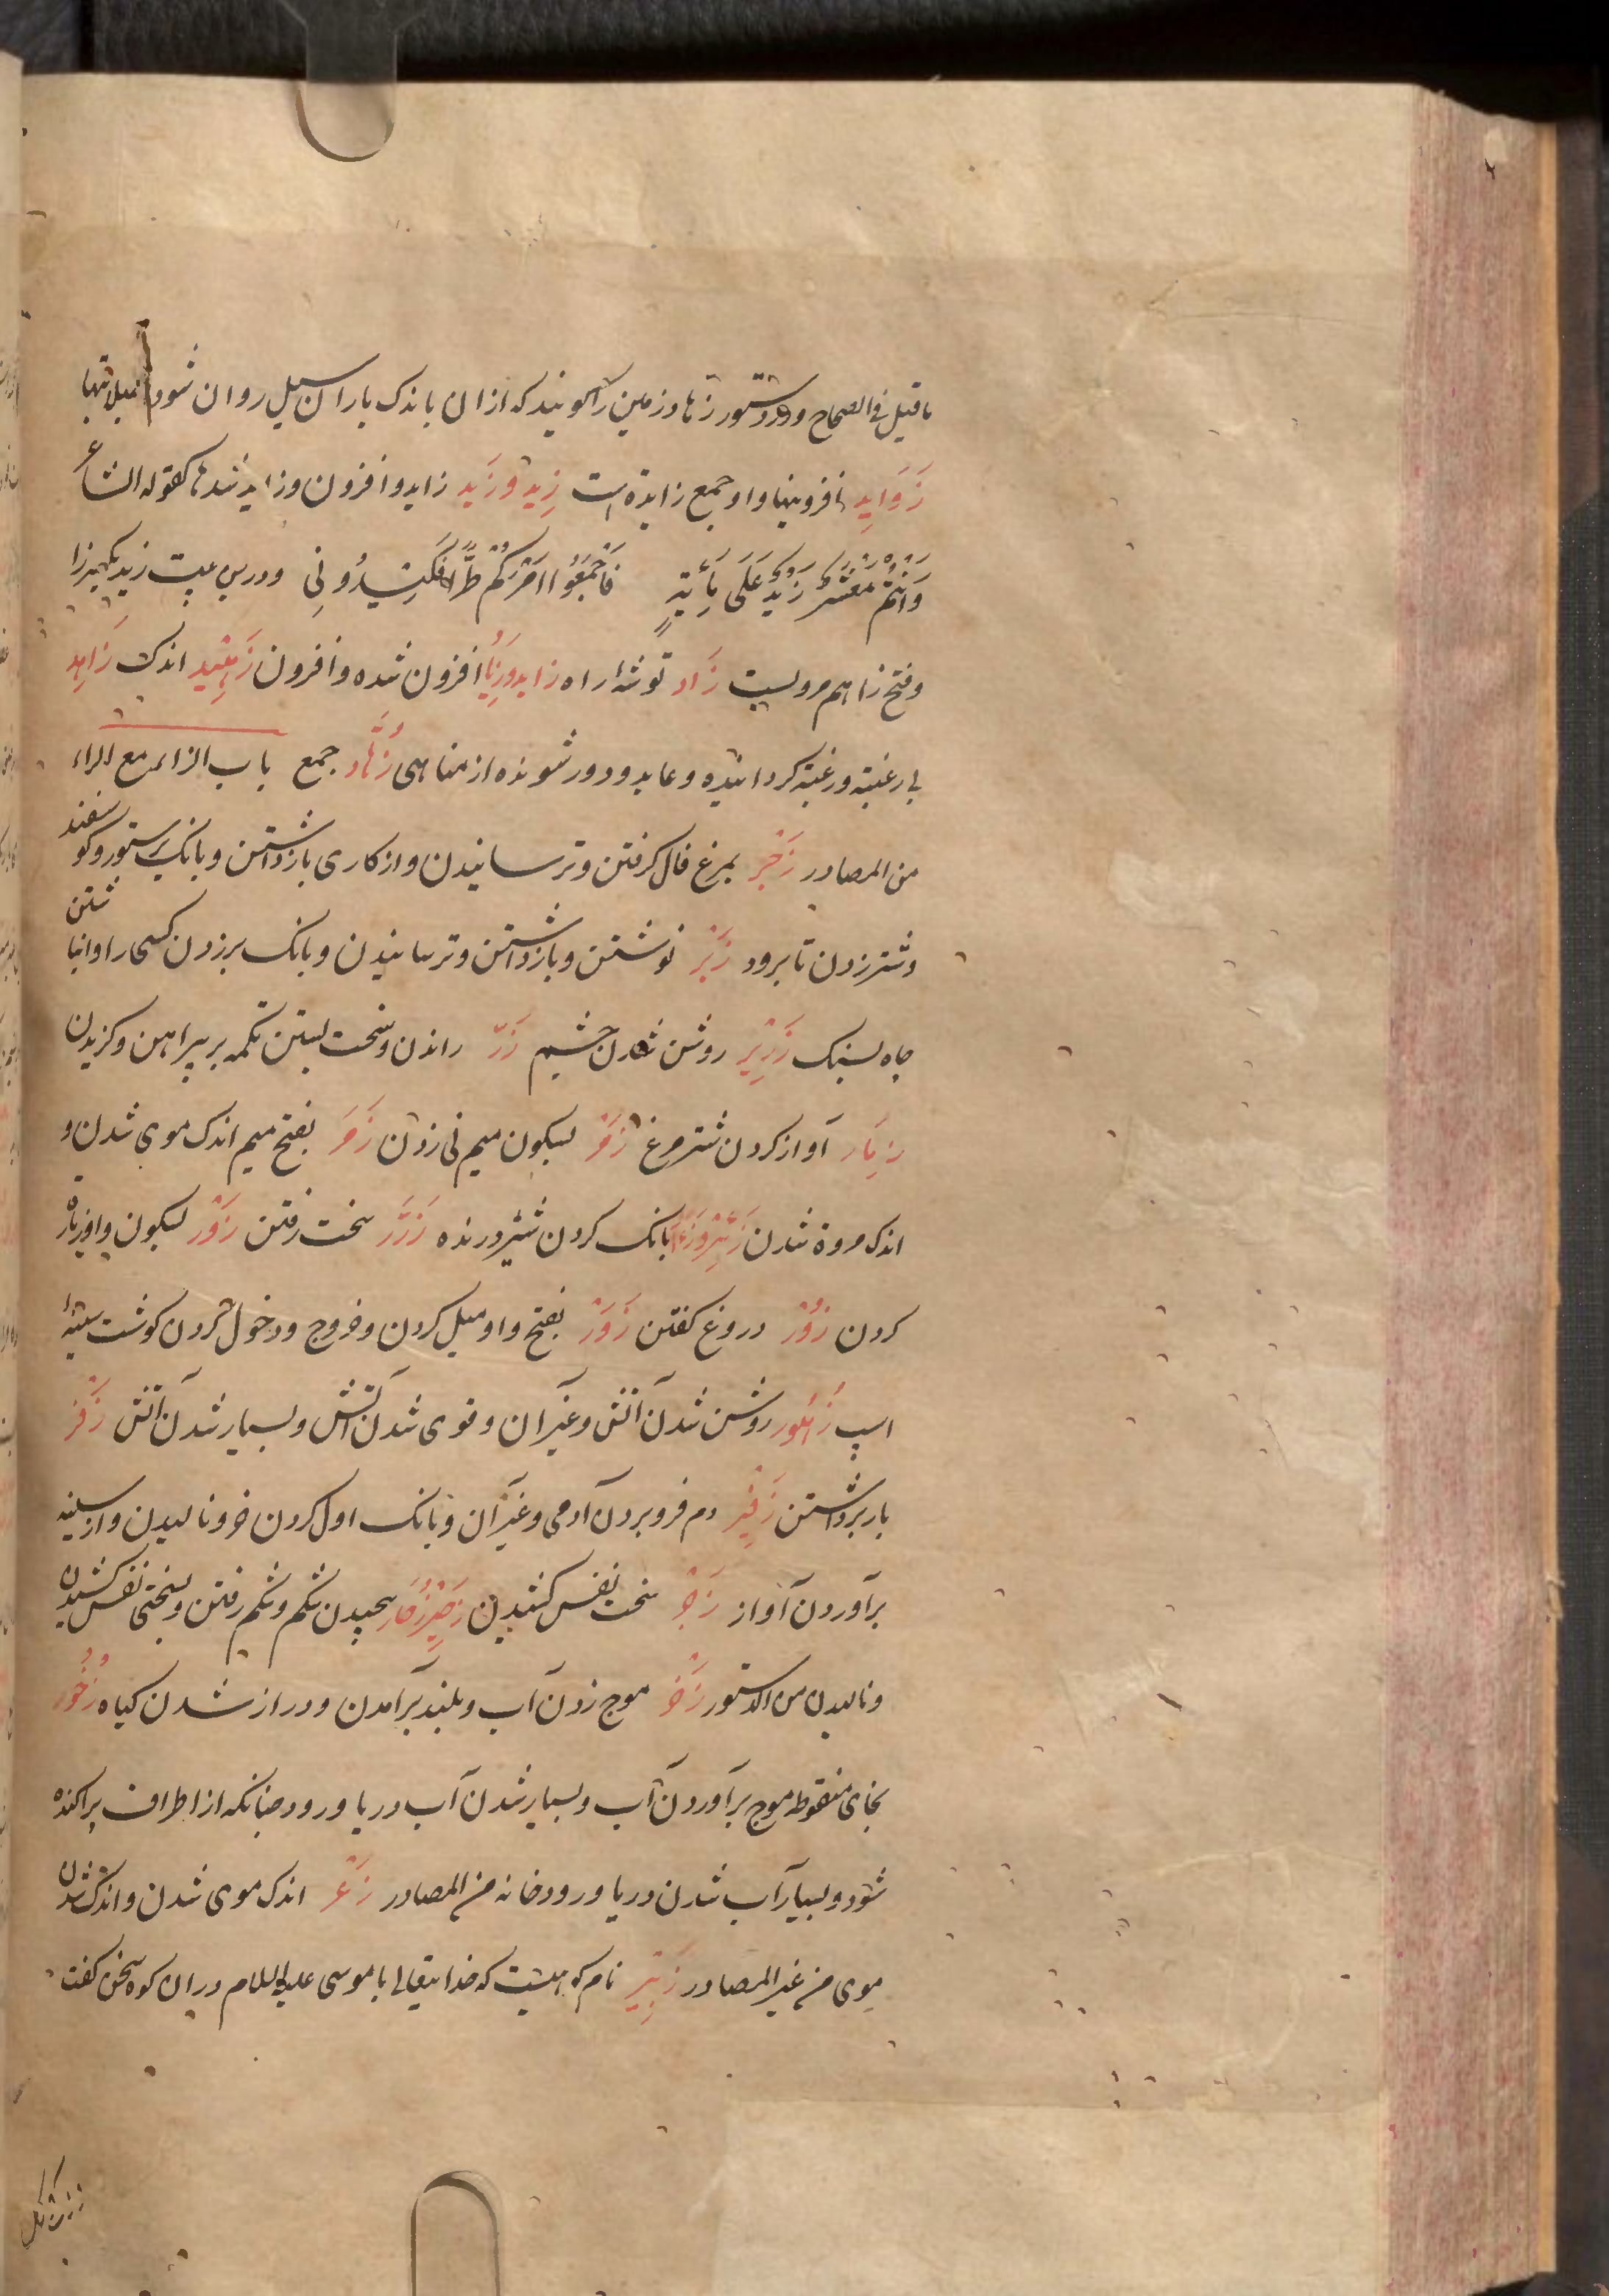 ما قیل فی الصحاح و در دستور زهاد زمین را گویند که از ان باندک باران سیل روان شود
زَوَایِد افزونیها و او جمع زایدة است زِید و زَید زاید و افزون و زاید شدن کقوله الشاعر
وَاَنْتُمْ مَعْشَرٌ زَیْدٌ عَلَی مِائَةٍ فَاَجْمِعُوا اَمْرَکُمْ طُرًّا فَکِیدُونِی و درین بیت زید بکسر زا
و فتح زا هم مرویست زَاد توشهٔ راه زاید افزون شده و افزون زَهِید اندک زَاهِد
بی رغبت و رغبت گردانیده و عابد و دور شونده از مناهی زُهَّاد جمع باب الزاء مع الراء
من المصادر زَجْر بمرغ فال کرفتن و ترسانیدن و از کاری بازداشتن و بانک بر ستور و کوسفند
و شتر زدن تا برود زَبْر نوشتن و بازداشتن و ترسانیدن و بانک بر زدن کسی را و انباشتن
چاه بسنک زَرِیر روشن شدن چشم زَرّ راندن و سخت بستن تکمه بر پیراهن و کزیدن
زِمَار آواز کردن شتر مرغ زَمْر بسکون میم نی زدن زَمَر بفتح میم اندک موی شدن و
اندک مروة شدن زَئِیر بانک کردن شیر درنده زَرَّر سخت رفتن زَوْر بسکون واو زیارة
کردن زُوْر دروغ کفتن زَوَرْ بفتح واو میل کردن و خروج و دخول کردن کوشت سینهٔ
اسپ زُهُور روشن شدن آتش و غیر آن و قوی شدن آتش و بسیار شدن آتش زَفْر
بار برداشتن زَفِیر دم فرو بردن آدمی و غیر آن و بانک اول کردن خر و نالیدن و از سینه
برآوردن آواز زَحْر سخت نفس کشیدن زَحِیر زُحَار پیچیدن شکم و شکم رفتن و بسختی نفس کشیدن
و نالیدن من الدستور زَخْر موج زدن آب و بلند برآمدن و دراز شدن کیاه زُخُور
بخای منقوطه موج برآوردن آب و بسیار شدن آب دریا و رود چنانکه از اطراف پراکنده
شود و بسیار آب شدن دریا و رودخانه من المصادر زَعَر اندک موی شدن و اندک شدن
موی من غیر المصادر زَبِیر نام کوهیست که خدایتعالی با موسی علیه السلام در ان کوه سخن کفت